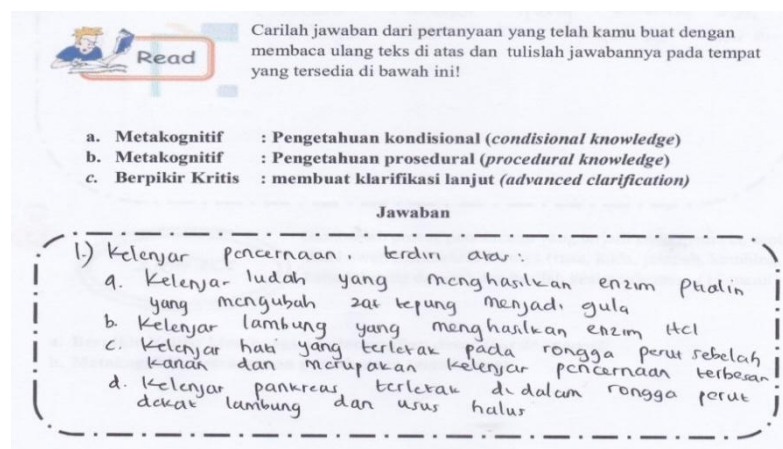 Read
Carilah jawaban dari pertanyaan yang telah kamu buat dengan
membaca ulang teks di atas dan tulislah jawabannya pada tempat
yang tersedia di bawah ini!
a. Metakognitif : Pengetahuan kondisional (condisional knowledge)
b. Metakognitif : Pengetahuan prosedural (procedural knowledge)
c. Berpikir Kritis : membuat klarifikasi lanjut (advanced clarification)
Jawaban
1.) Kelenjar pencernaan terdiri atas
a. Kelenjar ludah yang menghasilkan enzim Ptialin
yang mengubah zat tepung menjadi gula
b. Kelenjar lambung yang menghasilkan enzim Hcl
c. Kelenjar hati yang terletak pada rongga perut sebelah
kanan dan merupakan kelenjar pencernaan terbesar
d. Kelenjar pankreas terletak di dalam rongga perut
dekat lambung dan usus halus